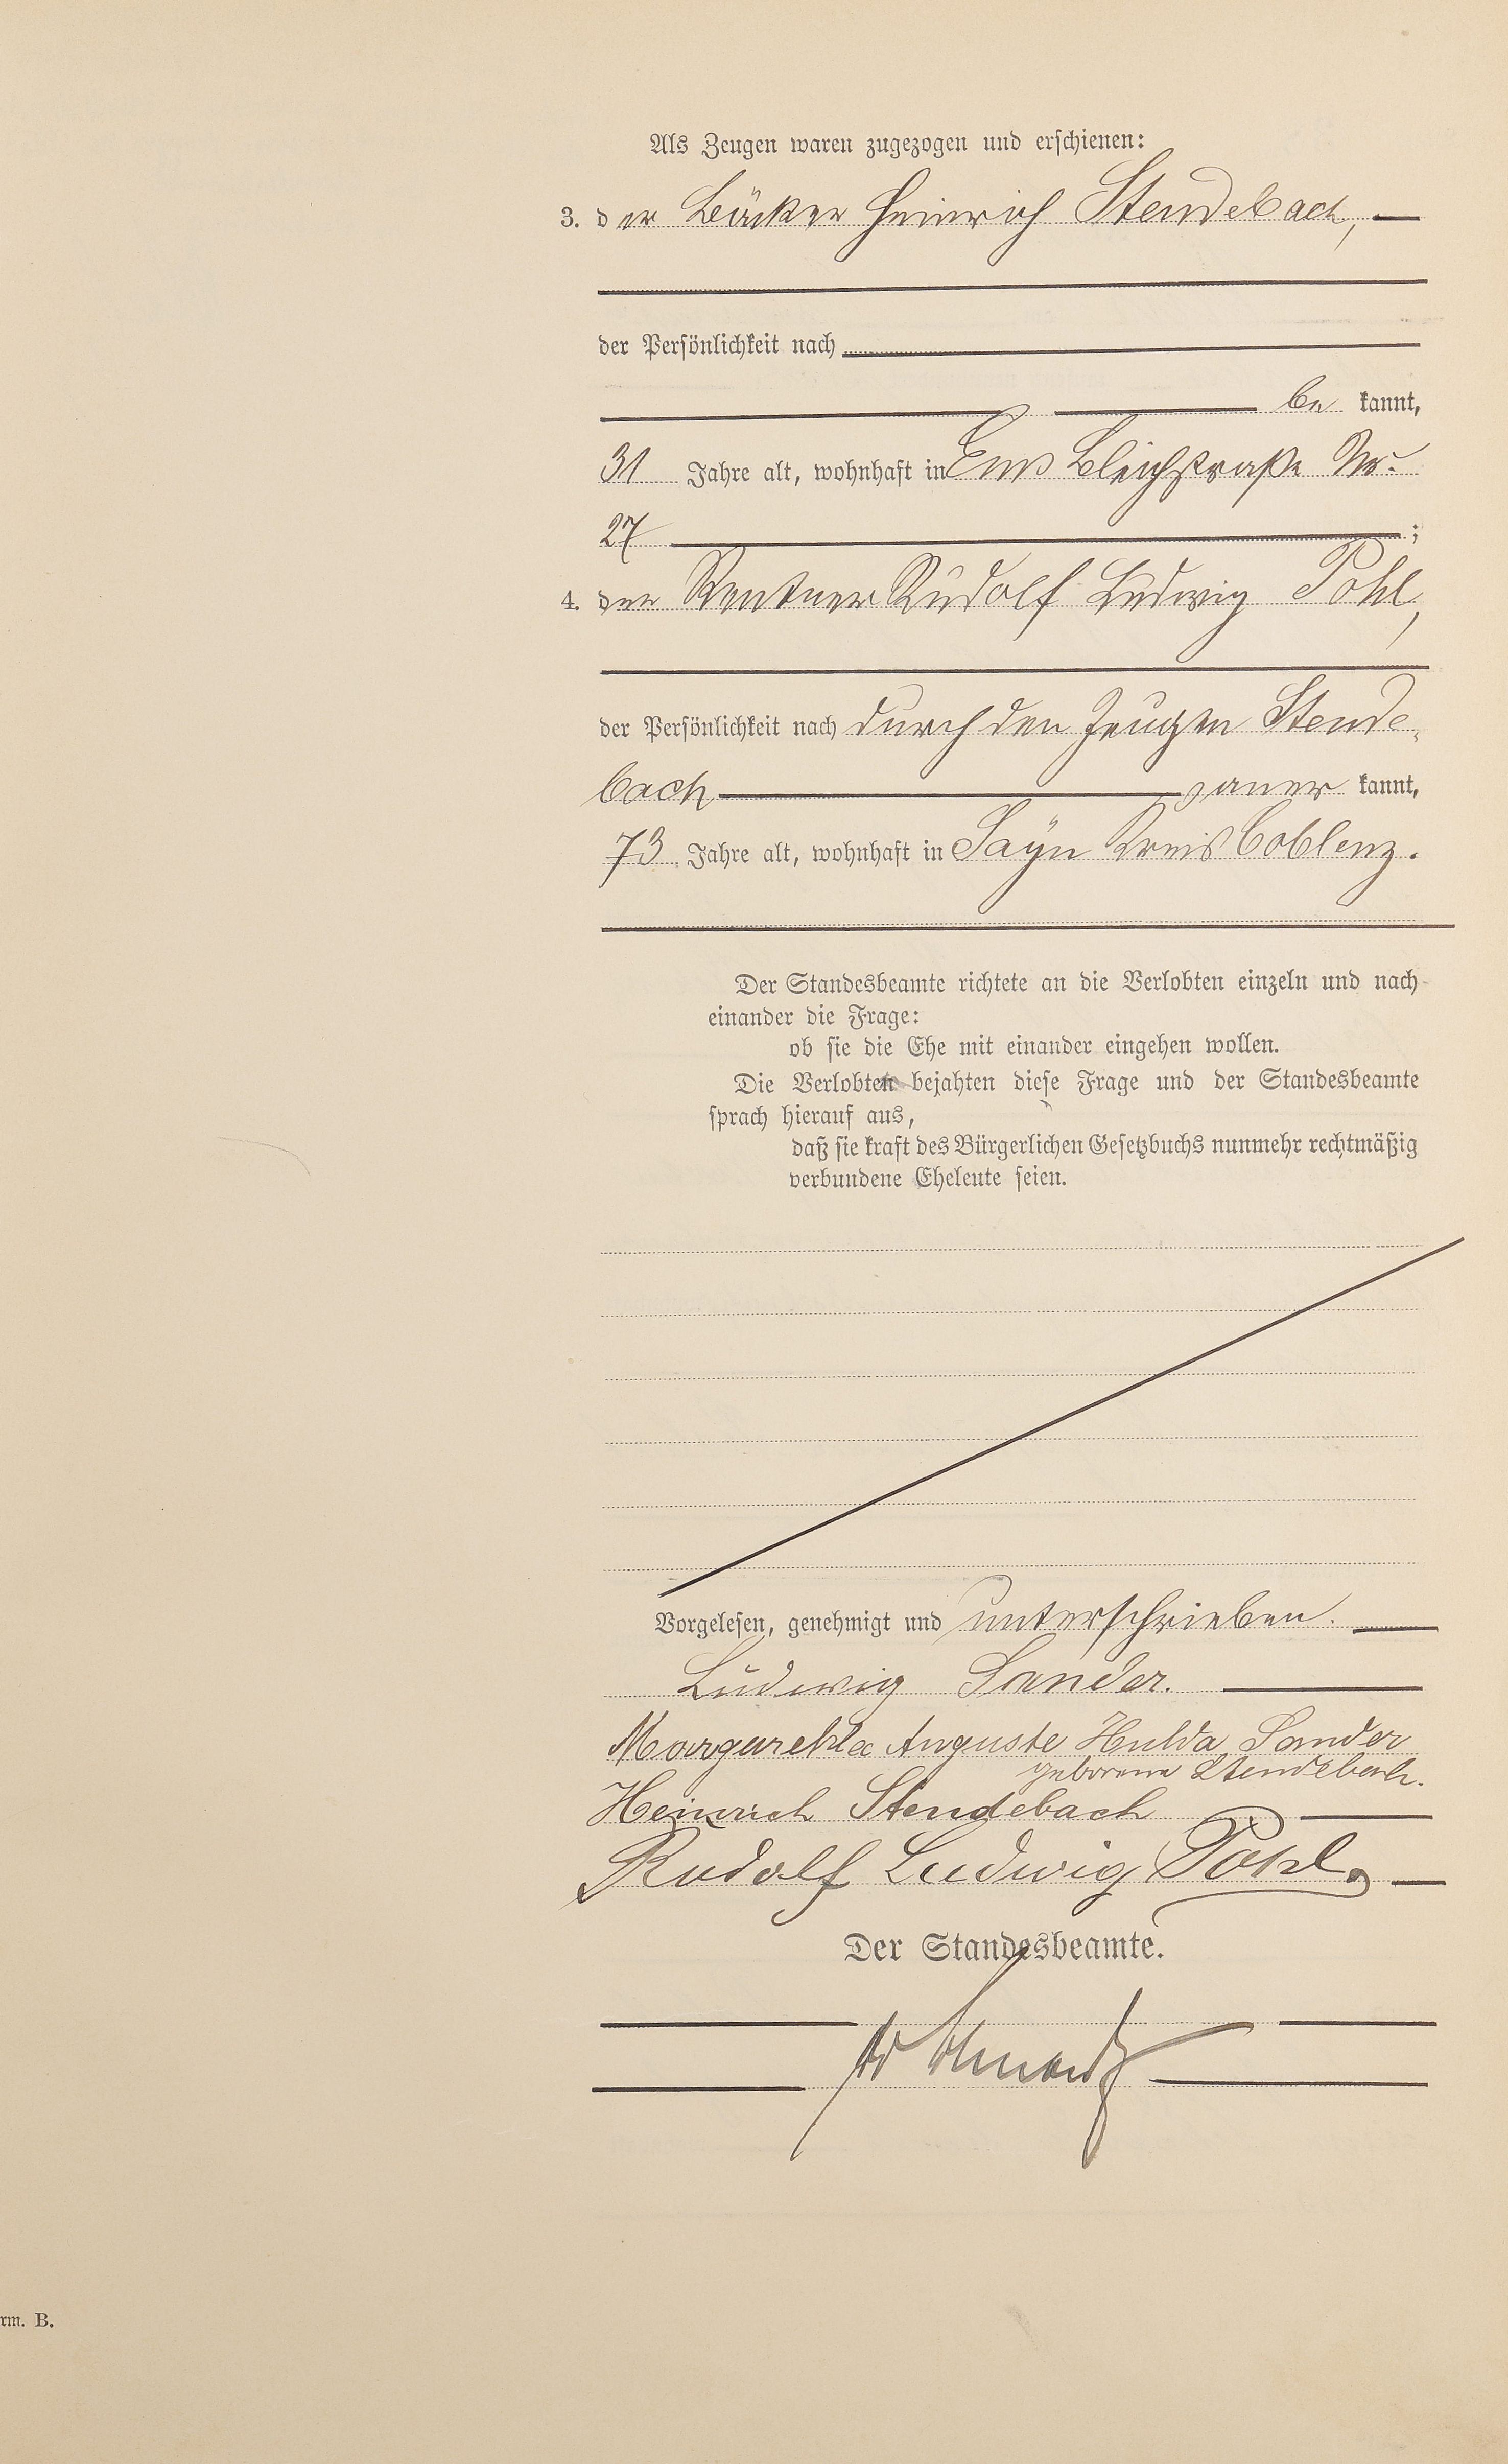 Als Zeugen waren zugezogen und erschienen:
3. der Bäcker Heinrich Stendebach,
der Persönlichkeit nach
be kannt,
31 Jahre alt, wohnhaft in Ems Bleichstraße Nr.
27 ;
4. der Rentner Rudolf Ludwig Pohl,
der Persönlichkeit nach durch den Zeugen Stende-
bach aner kannt,
73 Jahre alt, wohnhaft in Sayn Kreis Coblenz.
Der Standesbeamte richtete an die Verlobten einzeln und nach-
einander die Frage:
ob sie die Ehe mit einander eingehen wollen.
Die Verlobten bejahten diese Frage und der Standesbeamte
sprach hierauf aus,
daß sie kraft des Bürgerlichen Gesetzbuchs nunmehr rechtmäßig
verbundene Eheleute seien.
Vorgelesen, genehmigt und unterschrieben.
Ludwig Sander.
Margaretha Auguste Hulda Sander
geborene Stendebach.
Heinrich Stendebach
Rudolf Ludwig Pohl.
Der Standesbeamte.
rm. B.